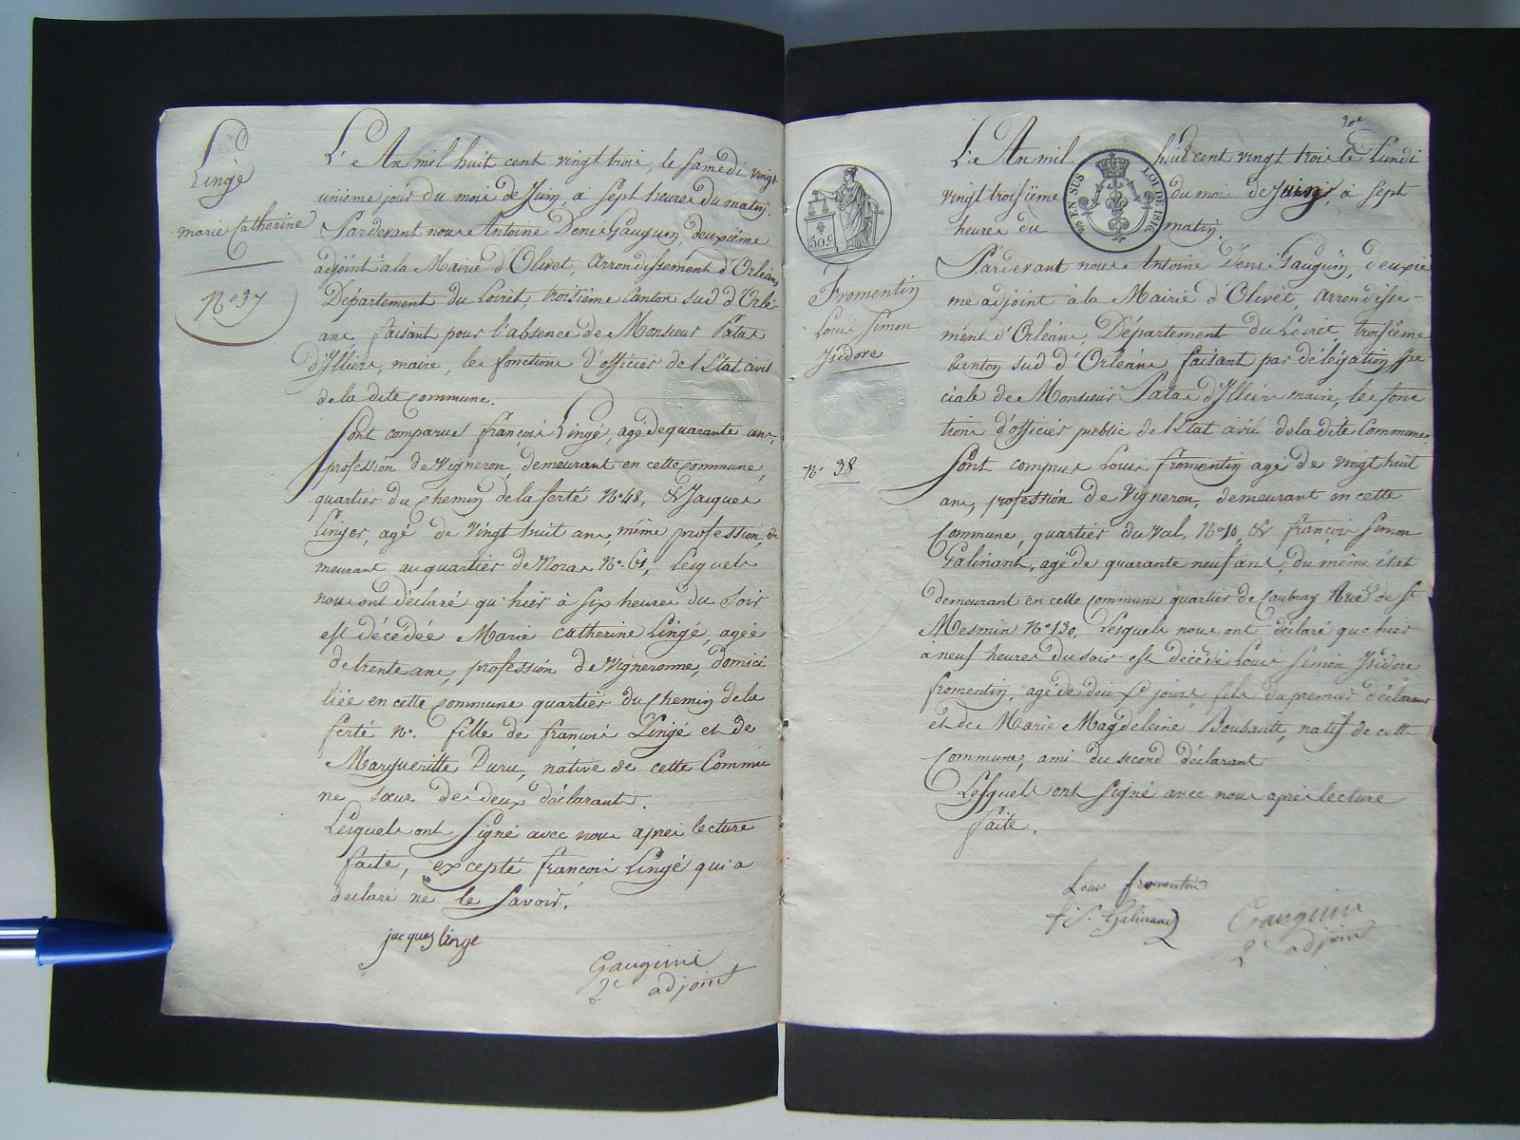 Lingé
marie Catherine
N.º 37
L'An mil huit cent vingt trois, le samedi vingt
unieme jour du mois de Juin, à sept heures du matin.
Pardevant nous Antoine Denis Gauguin, deuxième
adjoint à la Mairie d'Olivet, arrondissement d'Orléans,
Département du Loiret, troisième Canton sud d'Orlé-
ans faisant pour l'absence de Monsieur Patas
d'Illiers, maire, les fonctions d'officier de l'Etat civil
de la dite commune.
Sont comparus françois Lingé, agé de quarante ans,
profession de Vigneron, demeurant en cette commune,
quartier du chemin de la ferté N.º 48, & Jacques
Linger, agé de vingt huit ans, même profession, de
meurant au quartier de Noras N.º 61, lesquels
nous ont déclaré qu'hier à six heures du soir
est décédée Marie Catherine Lingé, agée
de trente ans, profession de Vigneronne, domici
liée en cette commune quartier du chemin de la
ferté N.º fille de françois Lingé et de
Margueritte Duru, native de cette Commu
ne sœur des deux déclarants.
Lesquels ont Signé avec nous après lecture
faite, excepté francois Lingé qui a
déclaré ne le savoir.
jacques linge
Gauguin
2e adjoint
20e
50 c
EN SUS
LOI DE 1816
Fromentin
Louis Simon
Isidore
N.º 38
L'An mil huit cent vingt trois le Lundi
vingt troisième du mois de Juin, à sept
heures du matin.
Pardevant nous Antoine Denis Gauguin, deuxiè
me adjoint à la Mairie d'Olivet, arrondisse-
ment d'Orléans, Département du Loiret, troisième
Canton sud d'Orléans faisant par délégation spé-
ciale de Monsieur Patas d'Illiers maire, les fonc
tions d'officier public de l'Etat civil de la dite Commune.
Sont comparus Louis fromentin agé de vingt huit
ans, profession de Vigneron, demeurant en cette
Commune, quartier du Val, N.º 10, & françois Simon
Galinant, agé de quarante neuf ans, du même état
demeurant en cette commune quartier de Caubray Rue de St
Mesmin N.º 130, lesquels nous ont déclaré que hier
à neuf heures du soir est décédé Louis Simon Isidore
fromentin, agé de dix sept jours, fils du premier déclarant
et de Marie Magdeleine Boubault, natif de cette
Commune, ami du second déclarant
Lesquels ont signé avec nous après lecture
faite.
Louis fromentin
f. S. Galinand
Gauguin
2e adjoint